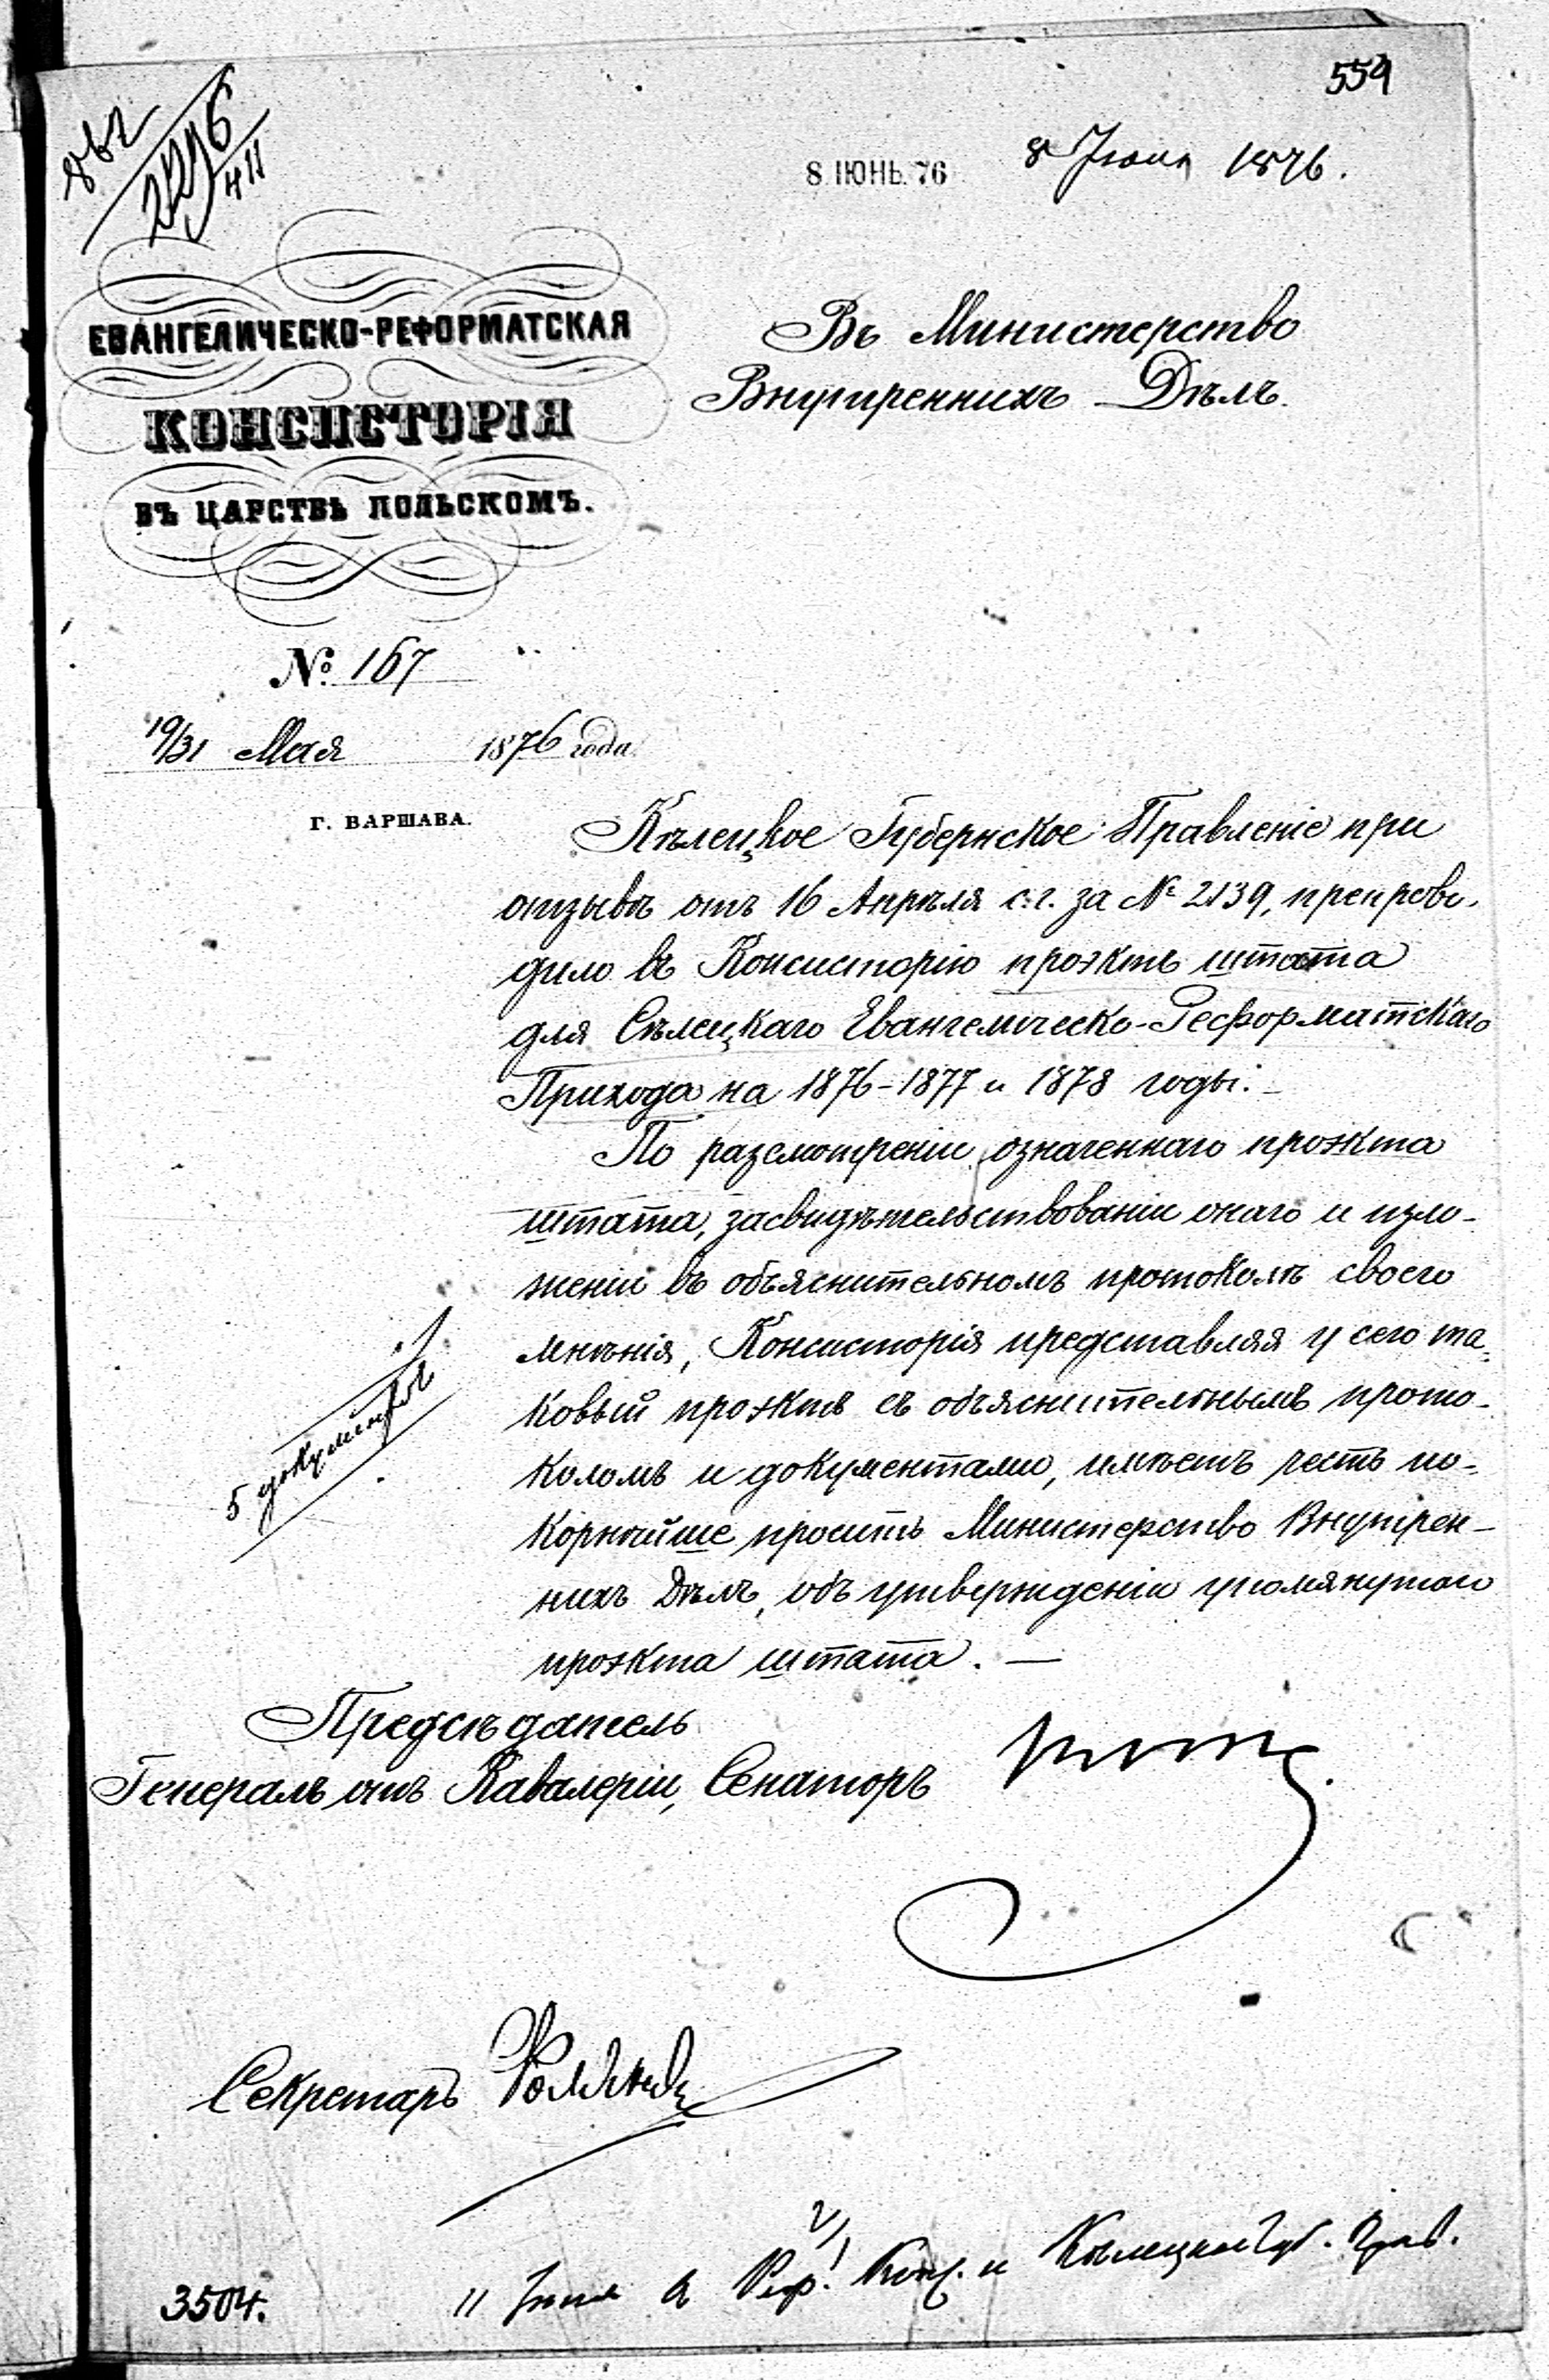 559
8 ИЮНЬ. 76
8 Июня 1876.
ЕВАНГЕЛИЧЕСКО-РЕФОРМАТСКАЯ
КОНСИСТОРІЯ
ВЪ ЦАРСТВѢ ПОЛЬСКОМЪ.
№ 167
19/31 Мая 1876 года
Г. ВАРШАВА.
Въ Министерство
Внутреннихъ Дѣлъ.
Кѣлецкое Губернское Правленіе при
отзывѣ отъ 16 Апрѣля с.г. за № 2139, препрово-
дило въ Консисторію проэктъ штата
для Сѣлецкаго Евангелическо-Реформатскаго
Прихода на 1876-1877 и 1878 годы.-
По разсмотреніи означеннаго проэкта
штата, засвидѣтельствованіи онаго и изло-
женіи въ объяснительномъ протоколѣ своего
мнѣнія, Консисторія представляя у сего та-
ковый проэктъ съ объяснительнымъ прото-
коломъ и документами, имѣетъ честь по-
корнѣйше просить Министерство Внутрен-
нихъ Дѣлъ, объ утвержденіи упомянутаго
проэкта штата. —
5 документовъ
Предсѣдатель
Генералъ отъ Кавалеріи, Сенаторъ
Секретарь
11 Іюня Реф. Конс. и Кѣлецкое Губ. Прав.
3504.